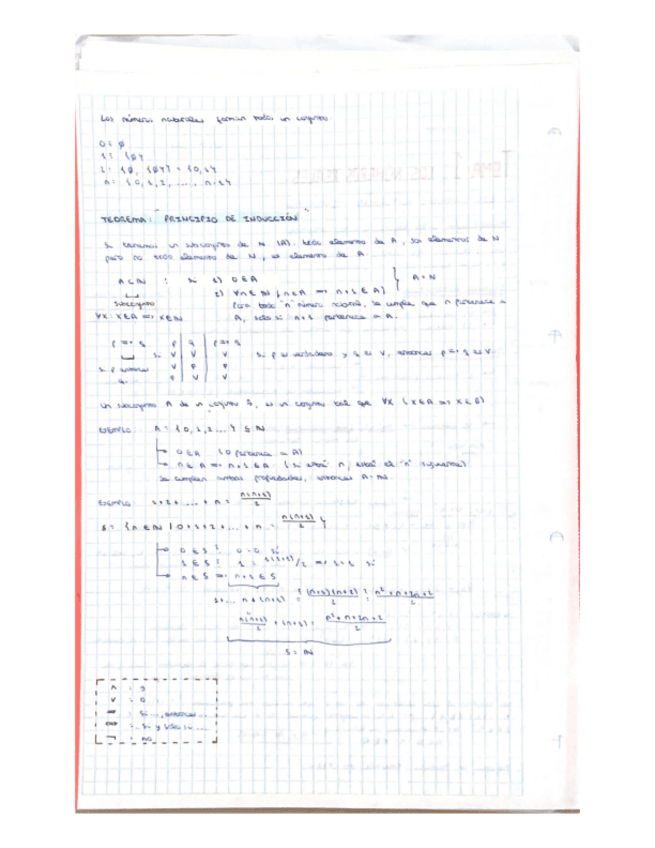 Los números naturales forman todos un conjunto
0 = ∅
1 = {∅}
2 = {∅, {∅}} = {0,1}
n = {0,1,2, ..., n-1}
TEOREMA: "PRINCIPIO DE INDUCCIÓN"
Si tenemos un subconjunto de N (A). todo elemento de A, son elementos de N
pero no todo elemento de N, es elemento de A.
A ⊂ N : Si 1) 0 ∈ A } A = N
2) ∀n ∈ N (n ∈ A ⇒ n+1 ∈ A)
Subconjunto
Para todo "n" número se cumple que n pertenece a
∀x: x ∈ A ⇒ x ∈ N
A, solo si n+1 pertenece a A.
p ⇒ q Si p q p ⇒ q
V V V Si p es verdadero y q es V, entonces p ⇒ q es V.
Si p entonces q.
Un subconjunto A de un conjunto B, es un conjunto tal que ∀x (x ∈ A ⇒ x ∈ B)
EJEMPLO: A = {0,1,2...} ⊆ N
0 ∈ A (0 pertenece a A)
n ∈ A ⇒ n+1 ∈ A (si está n, está el "n" siguiente)
Se cumplen ambas propiedades, entonces A = N
EJEMPLO: 1+2+ ... + n = n(n+1)/2
S = {n ∈ N / 0+1+2+...+ n = n(n+1)/2}
0 ∈ S? 0=0 sí
1 ∈ S? 1 = 1(1+1)/2 ⇒ 1=1 sí
n ∈ S ⇒ n+1 ∈ S
1+... n+(n+1) =? (n+1)(n+2)/2 = n²+n+2n+2/2
n(n+1)/2 + (n+1) = n²+n+2n+2/2
S = N
∧ = y
∨ = o
⇒ = Si ..., entonces ...
⇔ = ... Si y sólo si ...
¬ = no